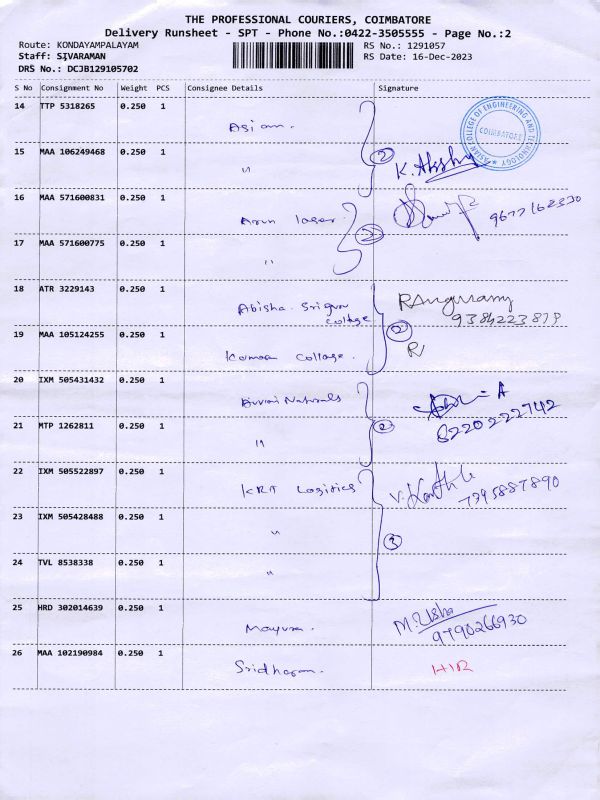 THE PROFESSIONAL COURIERS, COIMBATORE
Delivery Runsheet - SPT - Phone No.:0422-3505555 - Page No.:2
Route: KONDAYAMPALAYAM
RS No.: 1291057
Staff: SIVARAMAN
RS Date: 16-Dec-2023
DRS No.: DCJB129105702
S No Consignment No Weight PCS Consignee Details Signature
14 TTP 5318265 0.250 1
Asian.
ASIAN COLLEGE OF ENGINEERING AND TECHNOLOGY
COIMBATORE
15 MAA 106249468 0.250 1
" 2 K. Akshy
16 MAA 571600831 0.250 1
Arun laser 2 9677162330
17 MAA 571600775 0.250 1
"
18 ATR 3229143 0.250 1
Abisha. Sriguru
College
Rangasamy
9384223879
19 MAA 105124255 0.250 1
2 R
College.
20 IXM 505431432 0.250 1
Naturals A
21 MTP 1262811 0.250 1
" 2 8220222742
22 IXM 505522897 0.250 1
KRT Logitics V. Karthik
7395887890
23 IXM 505428488 0.250 1
" 3
24 TVL 8538338 0.250 1
"
25 HRD 302014639 0.250 1
Mayura. M. Usha
9790266930
26 MAA 102190984 0.250 1
Sridharan. HIR